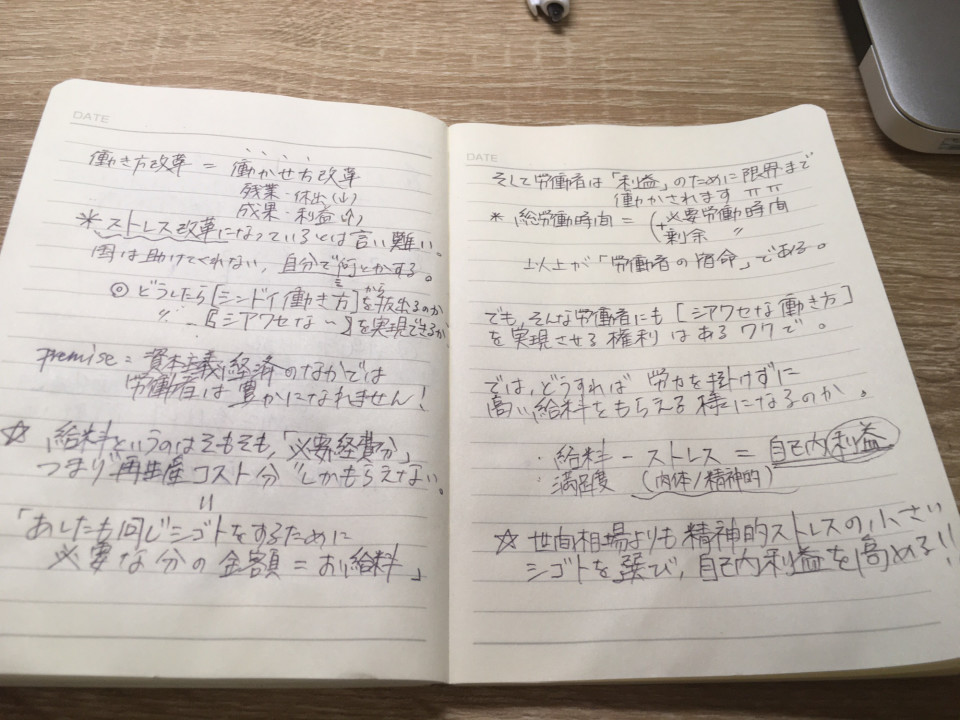 DATE
働き方改革 = 働かせ方改革
残業・休出(↓)
成果・利益(↑)
*ストレス改革になっているとは言い難い。
国は助けてくれない、自分で何とかする。
◎ どうしたら[シンドイ働き方]から抜出るのか
〃 『シアワセな〜』を実現できるか
premise = 資本主義経済のなかでは
労働者は豊かになれません!
☆ 給料というのはそもそも、「必要経費分」
つまり"再生産コスト分"しかもらえない。
||
「あしたも同じシゴトをするために
必要な分の金額 = お給料」
DATE
そして労働者は「利益」のために限界まで
働かされます
* 総労働時間 = (必要労働時間
+剰余 〃
以上が「労働者の宿命」である。
でも、そんな労働者にも[シアワセな働き方]
を実現させる権利はあるワケで。
では、どうすれば 労力を掛けずに
高い給料をもらえる様になるのか。
・給料 − ストレス = 自己内利益
・満足度 (肉体/精神的)
☆ 世間相場よりも精神的ストレスの小さい
シゴトを選び、自己内利益を高める!!